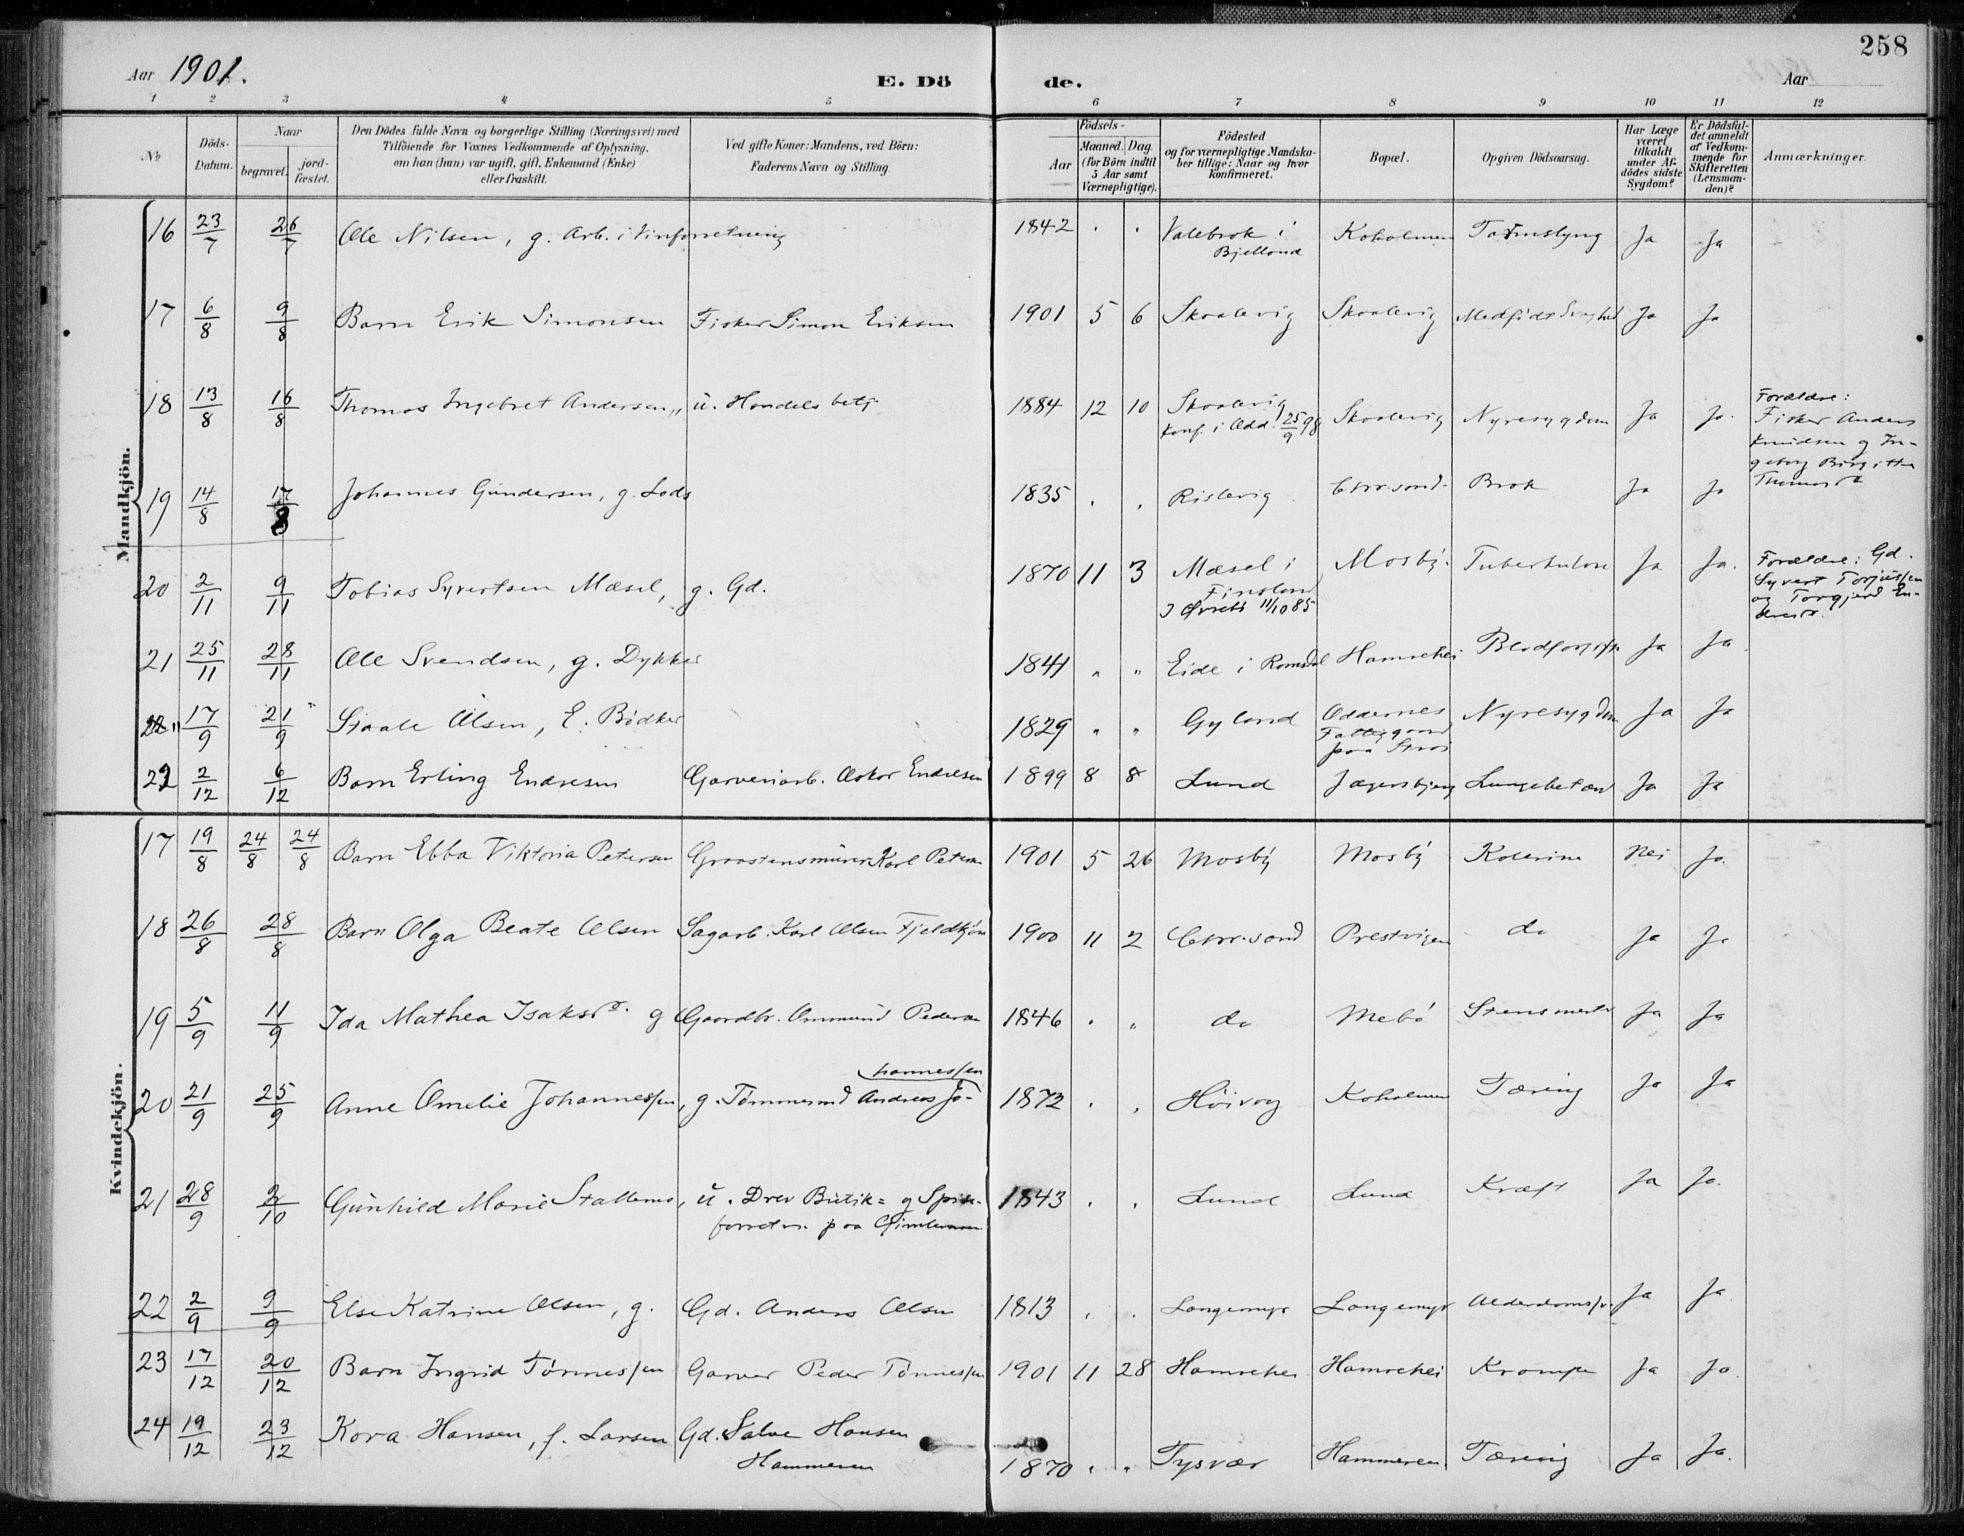 258
Aar 1901.
E. Dö de.
Aar
1 2 3 4 5 6 7 8 9 10 11 12
No
Döds-Datum.
Naar
begravet.
jordfæstet.
Den Dödes fulde Navn og borgerlige Stilling (Næringsvei) med
Tilföiende for Voxnes Vedkommende af Oplysning,
om han (hun) var ugift, gift, Enkemand (Enke)
eller fraskilt.
Ved gifte Koner: Mandens, ved Börn:
Faderens Navn og Stilling.
Födsels-
Aar
Maaned. Dag.
(for Börn indtil
5 Aar samt
Værnepligtige).
Födested
og for værnepligtige Mandskaber tillige: Naar og hvor
Konfirmeret.
Bopæl.
Opgiven Dödsaarsag.
Har Læge
været
tilkaldt
under Afdödes sidste
Sygdom?
Er Dödsfaldet anmeldt
af Vedkommende for
Skifteretten
(Lensmanden)?
Anmærkninger.
Mandkjön.
16 23/7 26/7 Ole Nilsen, g. Arb. i Vinforretning 1842 . . Valebrok i Bjelland Koholmen Tarmslyng Ja Ja
17 6/8 9/8 Barn Erik Simonsen Fisker Simon Eriksen 1901 5 6 Skaalevig Skaalevig Medfødt Svaghed Ja Ja
18 13/8 16/8 Thomas Ingebret Andersen,, u. Handelsbetj. 1884 12 10 Skaalevig Konf. i Odd. 25/9 98 Skaalevig Nyresygdom Ja Ja. Forældre:
Fisker Anders
Knudsen g Ingeborg Birgitte
Thomasd
19 14/8 17/8 Johannes Gundersen, g. Lods 1835 . . Rislevig Chr.sand. Brok Ja Ja
20 2/11 9/11 Tobias Syvertsen Mæsel, g. Gd. 1870 11 3 Mæsel i Finsland I Øvrebø 11/10 85 Mosby. Tuberkulose Ja Ja. Forældre: Gd.
Syvert Torjussen
og Torgjerd Endresd.
21 25/11 28/11 Ole Svendsen, g. Dykker 1841 " " Eide i Romsdal Hamrehei Blodforgift. Ja Ja
22 17/9 21/9 Staale Olsen, E. Bødker 1829 " " Gyland Oddernes Fattiggaard paa Strai Nyresygdom Ja Ja
22 2/12 6/12 Barn Erling Endresen Garveriarb. Oskar Endresen 1899 8 8 Lund Jægersbjerg Lungebetænd Ja Ja
Kvindekjön.
17 19/8 24/8 24/8 Barn Ebba Viktoria Petersen Graastensmurer Karl Petersen 1901 5 26 Mosby Mosby Kolerine Nei Ja.
18 26/8 28/8 Barn Olga Beate Olsen Sagarb. Karl Olsen Fjeldkjøn 1900 11 2 Chr.sand Prestvigen do Ja Ja
19 5/9 11/9 Ida Mathea Isaksd. g Gaardbr. Ommund Pedersen 1846 . " do Mebø Stensmerter Ja Ja
20 21/9 25/9 Anne Omelie Johannessen, g. Tømmermd Andreas Johannessen 1872 . . Høivag Koholmen Tæring Ja Ja
21 28/9 2/10 Gunhild Marie Stallemo, u. Drev Butik= g Spiseforretn. paa Gimlemoen 1843 . . Lund Lund Kræft Ja Ja.
22 2/9 9/9 Else Katrine Olsen, g. Gd. Anders Olsen 1813 . . Langemyr Langemyr Alderdomssv. Ja Ja
23 17/12 20/12 Barn Ingrid Tønnessen Garver Peder Tønnessen 1901 11 28 Hamrehei Hamrehei Krampe Ja Ja
24 19/12 23/12 Kora Hansen, f. Larsen Gd. Salve Hansen Hammeren 1870 . " Tysvær Hammeren Tæring Ja Ja.